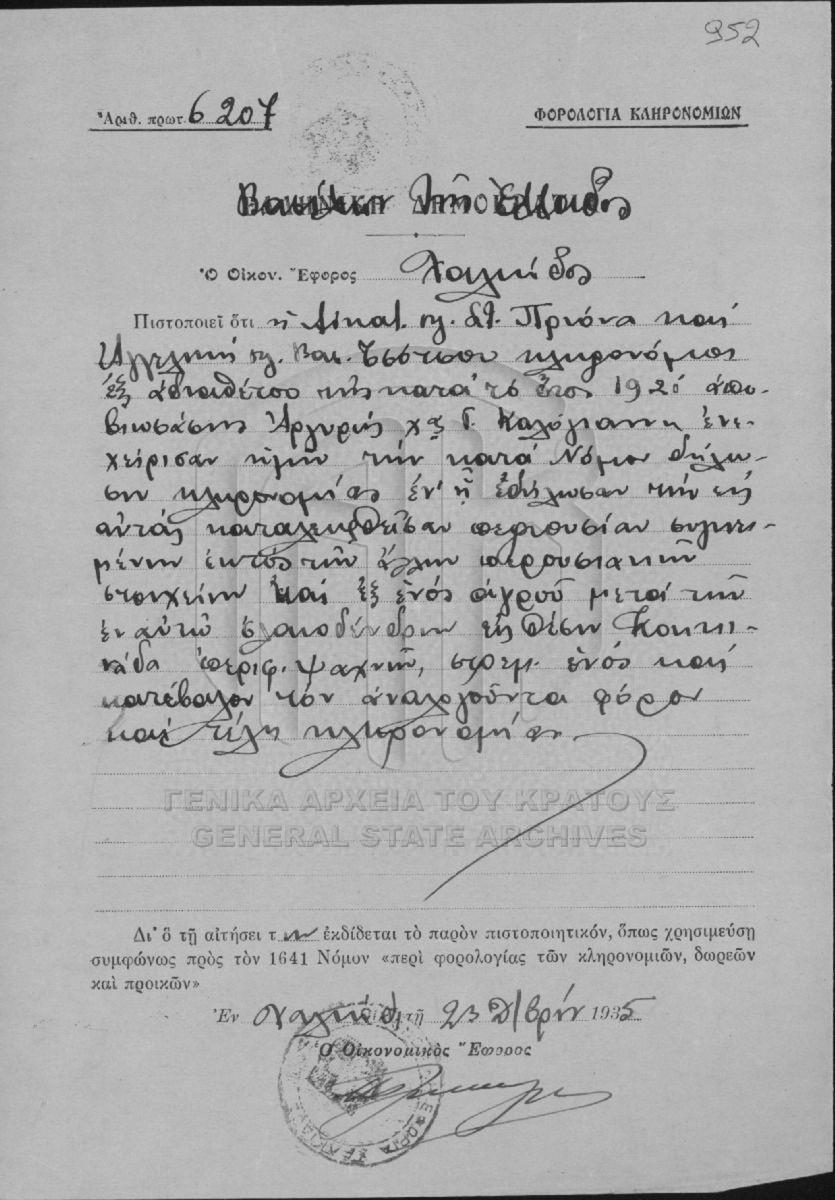 952
Ἀριθ. πρωτ. 6207
ΦΟΡΟΛΟΓΙΑ ΚΛΗΡΟΝΟΜΙΩΝ
Βασίλειον τῆς Ἑλλάδος
Ὁ Οἰκον. Ἔφορος Χαλκίδος
Πιστοποιεῖ ὅτι ἡ Αἰκατ. συζ. Πριόνα καὶ
Ἀγγελικὴ συζ. Βασ. κληρονόμοι
ἐξ ἀδιαθέτου τῆς κατὰ τὸ ἔτος 1920 ἀπο-
βιωσάσης Ἀργυρῆς χας Γ. Καλόγιαννη ἐνε-
χείρισαν ἡμῖν τὴν κατὰ Νόμον δήλω-
σιν κληρονομίας ἐν ᾗ ἐδήλωσαν τὴν εἰς
αὐτὰς καταλειφθεῖσαν περιουσίαν συγκει-
μένην ἐκτὸς τῶν ἄλλων περιουσιακῶν
στοιχείων καὶ ἐξ ἑνὸς ἀγροῦ μετὰ τῶν
ἐν αὐτῷ ἐλαιοδένδρων εἰς θέσιν Κοκκι-
νάδα περιφ. Ψαχνῶν, στρεμ. ἑνὸς καὶ
κατέβαλον τὸν ἀναλογοῦντα φόρον
καὶ τέλη κληρονομίας.
ΓΕΝΙΚΑ ΑΡΧΕΙΑ ΤΟΥ ΚΡΑΤΟΥΣ
GENERAL STATE ARCHIVES
Δι' ὃ τῇ αἰτήσει των ἐκδίδεται τὸ παρὸν πιστοποιητικόν, ὅπως χρησιμεύσῃ
συμφώνως πρὸς τὸν 1641 Νόμον «περὶ φορολογίας τῶν κληρονομιῶν, δωρεῶν
καὶ προικῶν»
Ἐν Χαλκίδι τῇ 23 Δ/βρίου 1935
Ὁ Οἰκονομικὸς Ἔφορος